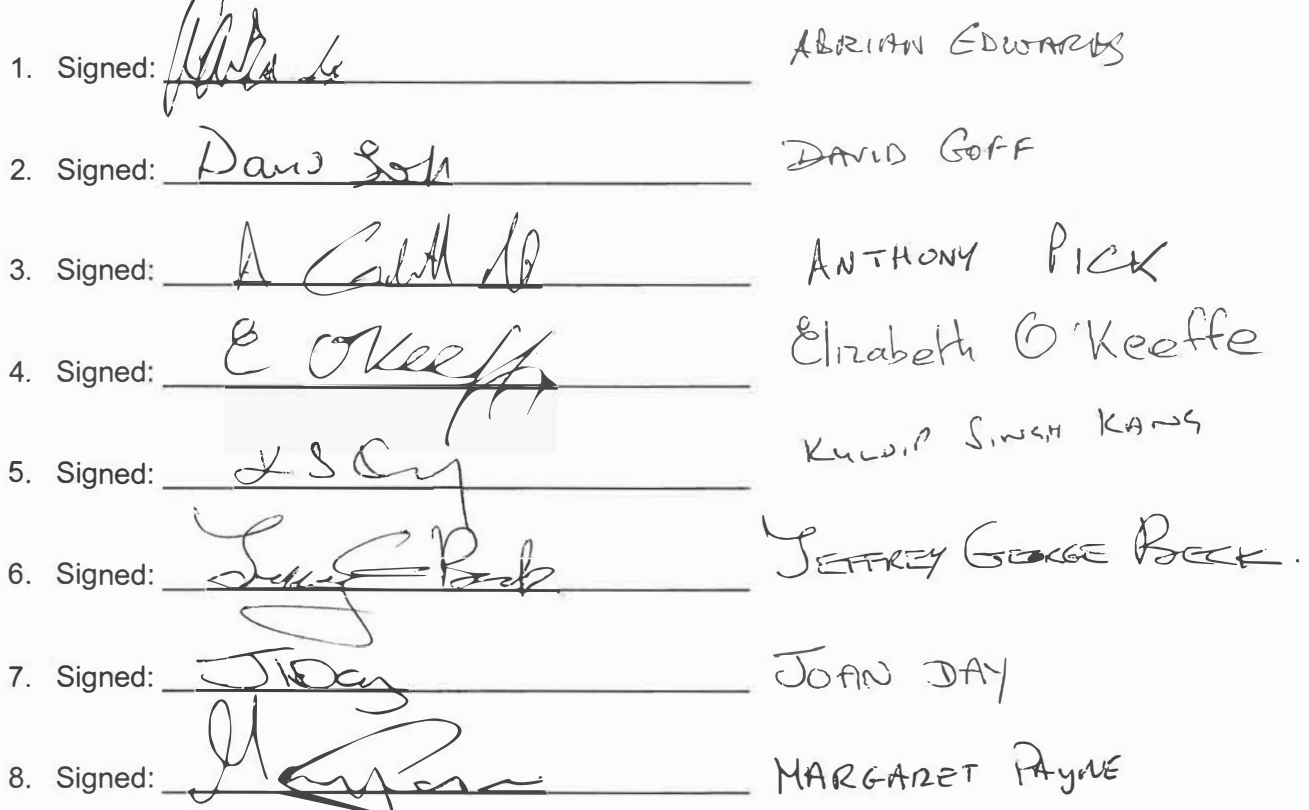 1. Signed: ADRIAN EDWARDS
2. Signed: David Goff DAVID GOFF
3. Signed: A ANTHONY PICK
4. Signed: E O'Keeffe Elizabeth O'Keeffe
5. Signed: K S KULDIP SINGH KANG
6. Signed: JEFFREY GEORGE BECK.
7. Signed: J Day JOAN DAY
8. Signed: MARGARET PAYNE